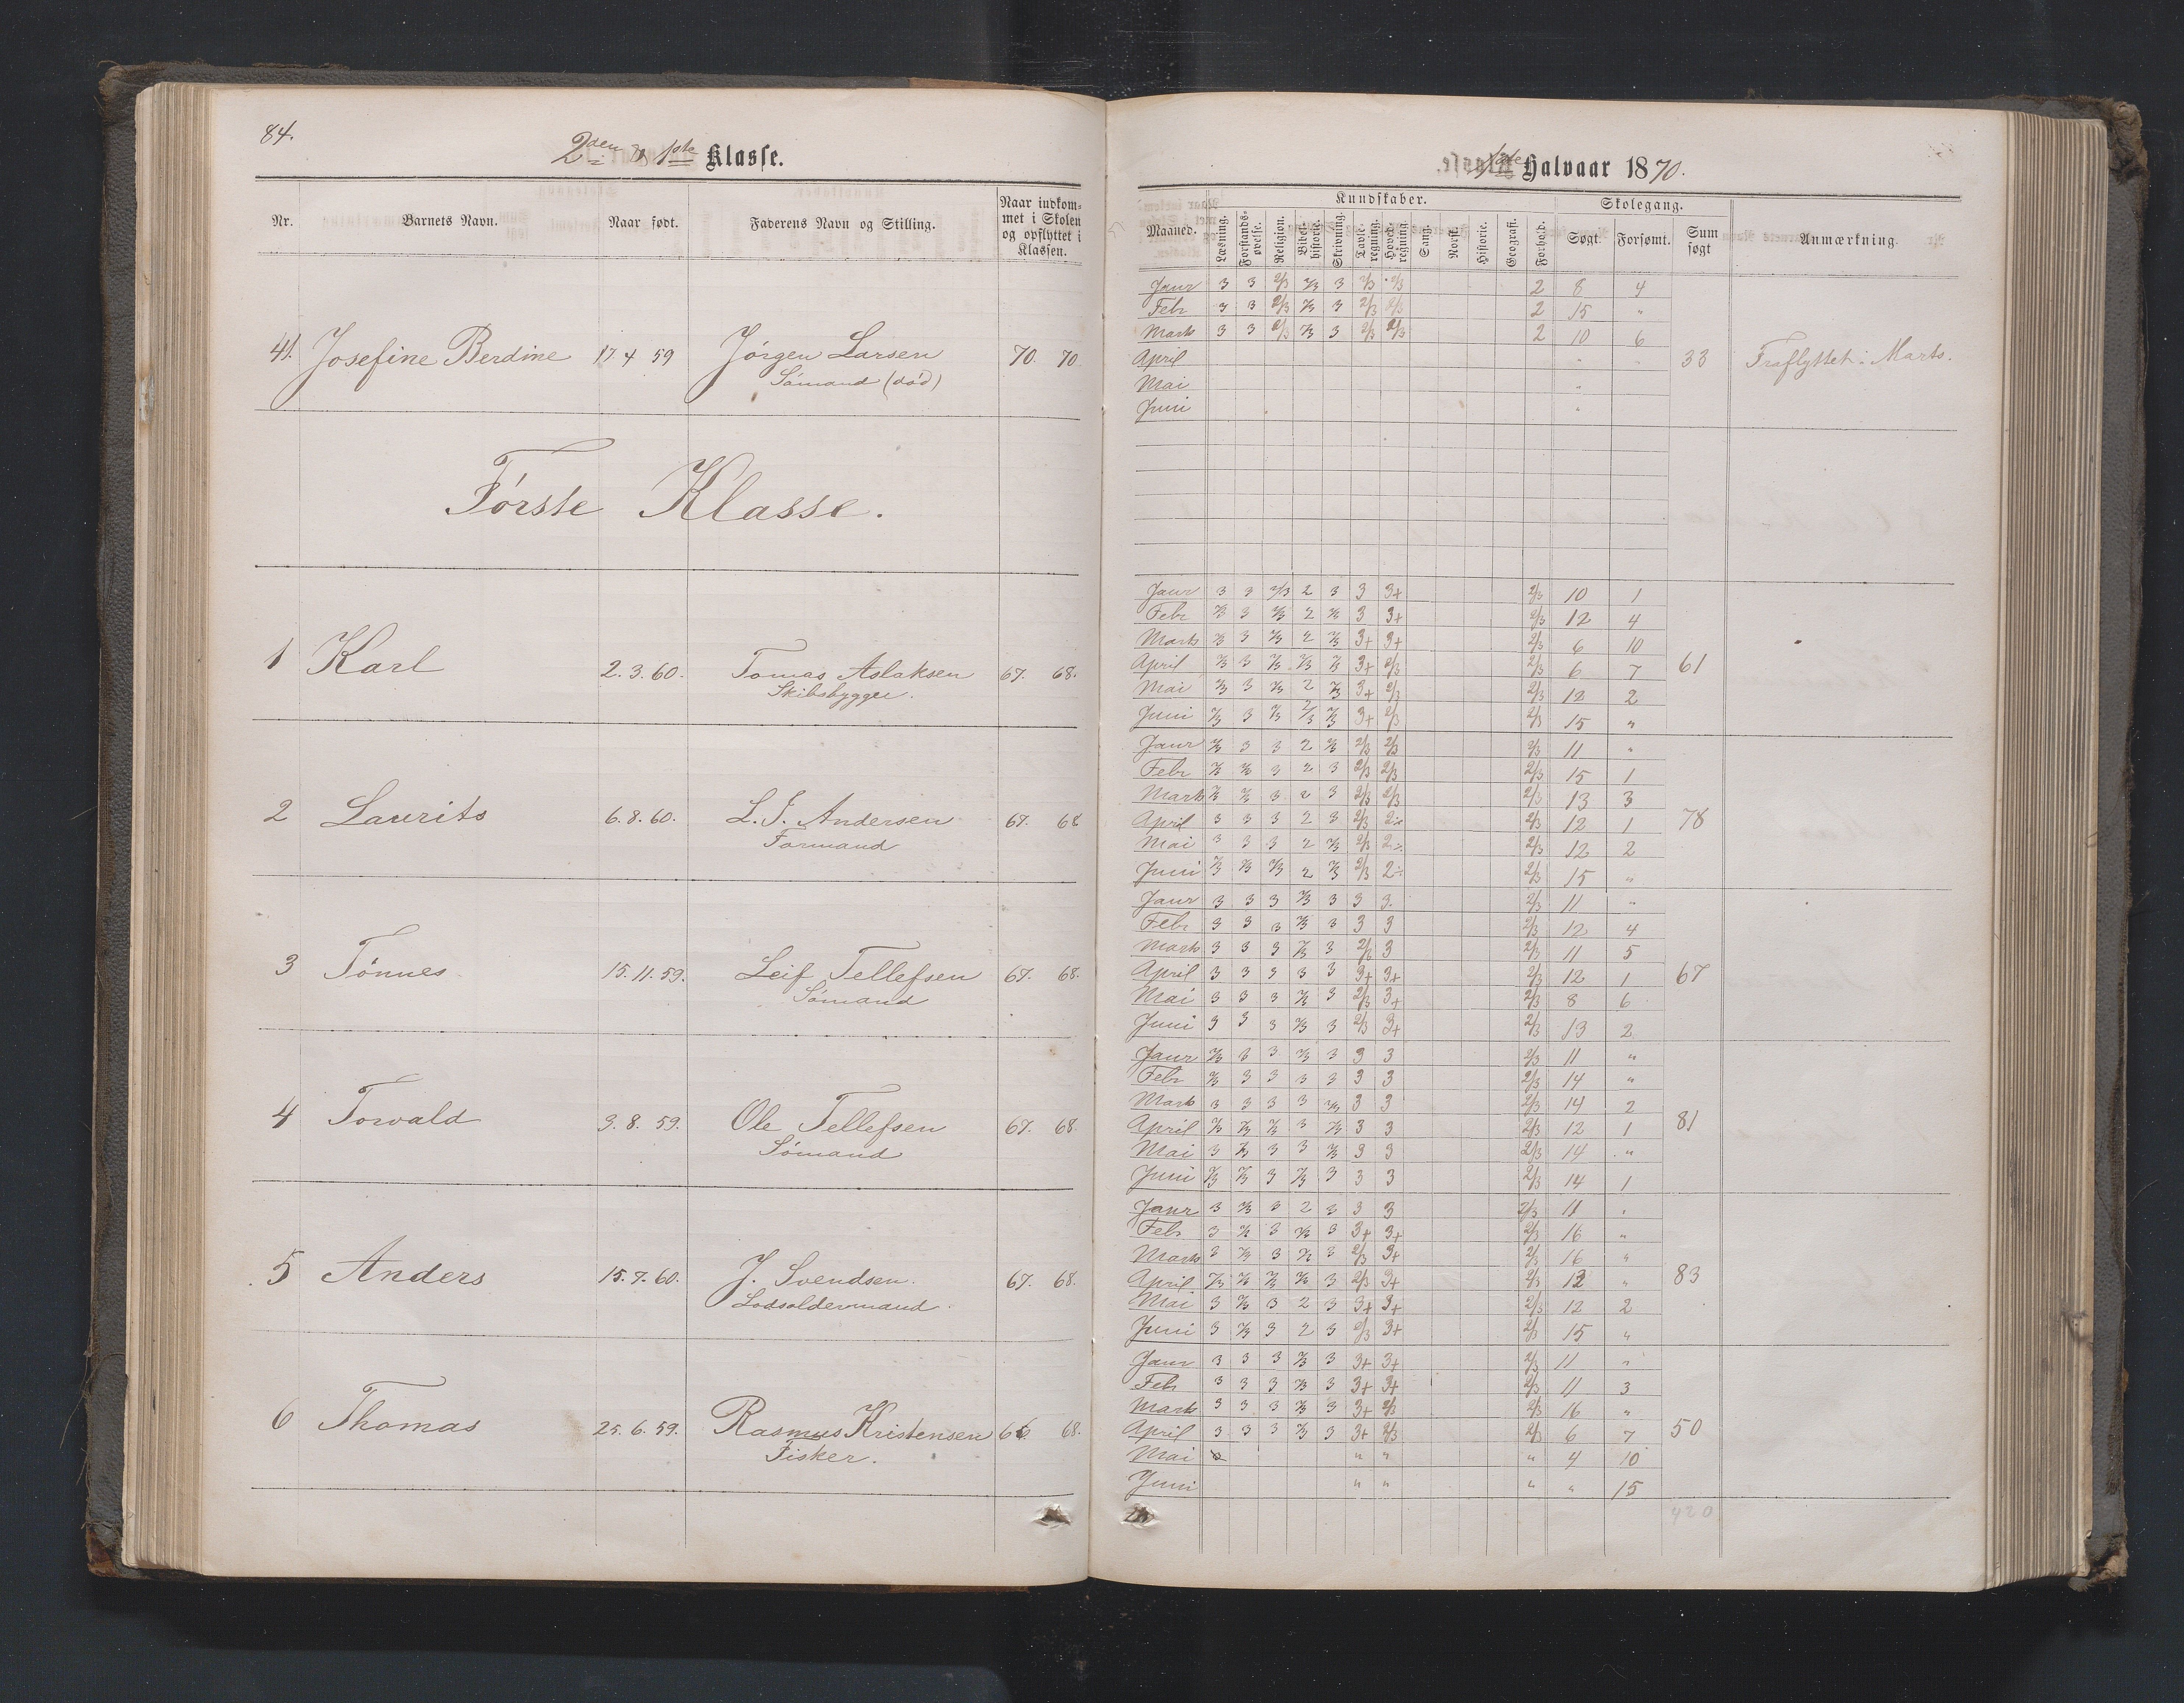 84.
2den og 1ste Klasse.
Nr. Barnets Navn. Naar født. Faderens Navn og Stilling. Naar indkom-
met i Skolen
og opflyttet i
Klassen.
41. Josefine Berdine 17 4 59 Jørgen Larsen 70. 70.
Sömand (död)
Første Klasse.
1 Karl 2. 3. 60. Tomas Aslaksen 67. 68.
Skibsbygger.
2 Laurits 6. 8. 60. L. J. Andersen 67. 68
Formand
3 Tönnes 15. 11. 59. Leif Tellefsen 67. 68.
Sömand
4 Torvald 9. 8. 59. Ole Tellefsen 67. 68.
Sömand
5 Anders 15. 7. 60. J. Svendsen. 67. 68.
Lodsoldermand.
6 Thomas 25. 6. 59. Rasmus Kristensen 66. 68.
Fisker.
1ste Halvaar 1870.
Kundskaber. Skolegang.
Maaned. Læsning. Forstands-øvelse. Religion. Bibel-historie. Skrivning. Tavle-regning. Hoved-regning. Sang. Norsk. Historie. Geografi. Forhold. Søgt. Forsømt. Sum søgt Anmærkning.
Janr 3 3 2/3 2/3 3 2/3 2/3 2 8 4
Febr 3 3 2/3 2/3 3 2/3 2/3 2 15 "
Marts 3 3 2/3 2/3 3 2/3 2/3 2 10 6
April 33 Fraflyttet i Marts.
Mai "
Juni "
Janr 3 3 2/3 2 3 3 3+ 2/3 10 1
Febr 2/3 3 2/3 2 2/3 3 3+ 2/3 12 4
Marts 2/3 3 2/3 2 2/3 3+ 3+ 2/3 6 10
April 2/3 3 2/3 2/3 2/3 3+ 2/3 2/3 6 7 61
Mai 2/3 3 2/3 2 2/3 3+ 2/3 2/3 12 2
Juni 2/3 3 2/3 2/3 2/3 3+ 2/3 2/3 15 "
Janr 2/3 3 3 2 2/3 2/3 2/3 2/3 11 "
Febr 2/3 2/3 3 2 3 2/3 2/3 2/3 15 1
Marts 2/3 2/3 3 2 3 2/3 2/3 2/3 13 3
April 3 3 3 2 3 2/3 2÷ 2/3 12 1 78
Mai 3 3 3 2 2/3 2/3 2÷ 2/3 12 2
Juni 2/3 2/3 2/3 2 2/3 2/3 2÷ 2/3 15 "
Janr 3 3 3 2/3 3 3 3 2/3 11 "
Febr 3 3 3 2/3 3 3 3 2/3 12 4
Marts 3 3 3 2/3 3 2/3 3 2/3 11 5
April 3 3 3 3 3 3+ 3+ 2/3 12 1 67
Mai 3 3 3 2/3 3 2/3 3+ 2/3 8 6
Juni 3 3 3 2/3 3 2/3 3+ 2/3 13 2
Janr 2/3 3 3 2/3 3 3 3 2/3 11 "
Febr 2/3 3 3 3 3 3 3 2/3 14 "
Marts 3 3 3 3 2/3 3 3 2/3 14 2
April 2/3 2/3 2/3 3 2/3 3 3 2/3 12 1 81
Mai 3 2/3 3 3 2/3 3 3 2/3 14 "
Juni 2/3 2/3 3 2/3 3 3 3 2/3 14 1
Janr 3 2/3 3 2 3 3 3 2/3 11 "
Febr 3 2/3 3 2/3 3 3+ 3+ 2/3 16 "
Marts 3 2/3 3 2/3 3 2/3 3+ 2/3 16 "
April 2/3 2/3 2/3 2/3 3 2/3 3+ 2/3 12 " 83
Mai 3 2/3 3 2 3 3+ 3+ 2/3 12 2
Juni 3 2/3 3 2 3 2/3 3+ 2/3 15 "
Janr 3 3 3 2/3 3 3+ 3+ 2/3 11 "
Febr 3 3 3 2/3 3 3+ 3+ 2/3 11 3
Marts 3 3 3 2/3 3 3+ 2/3 2/3 16 "
April 3 3 3 2/3 3 3+ 2/3 2/3 6 7 50
Mai " " " 4 10
Juni " " " " 15
420